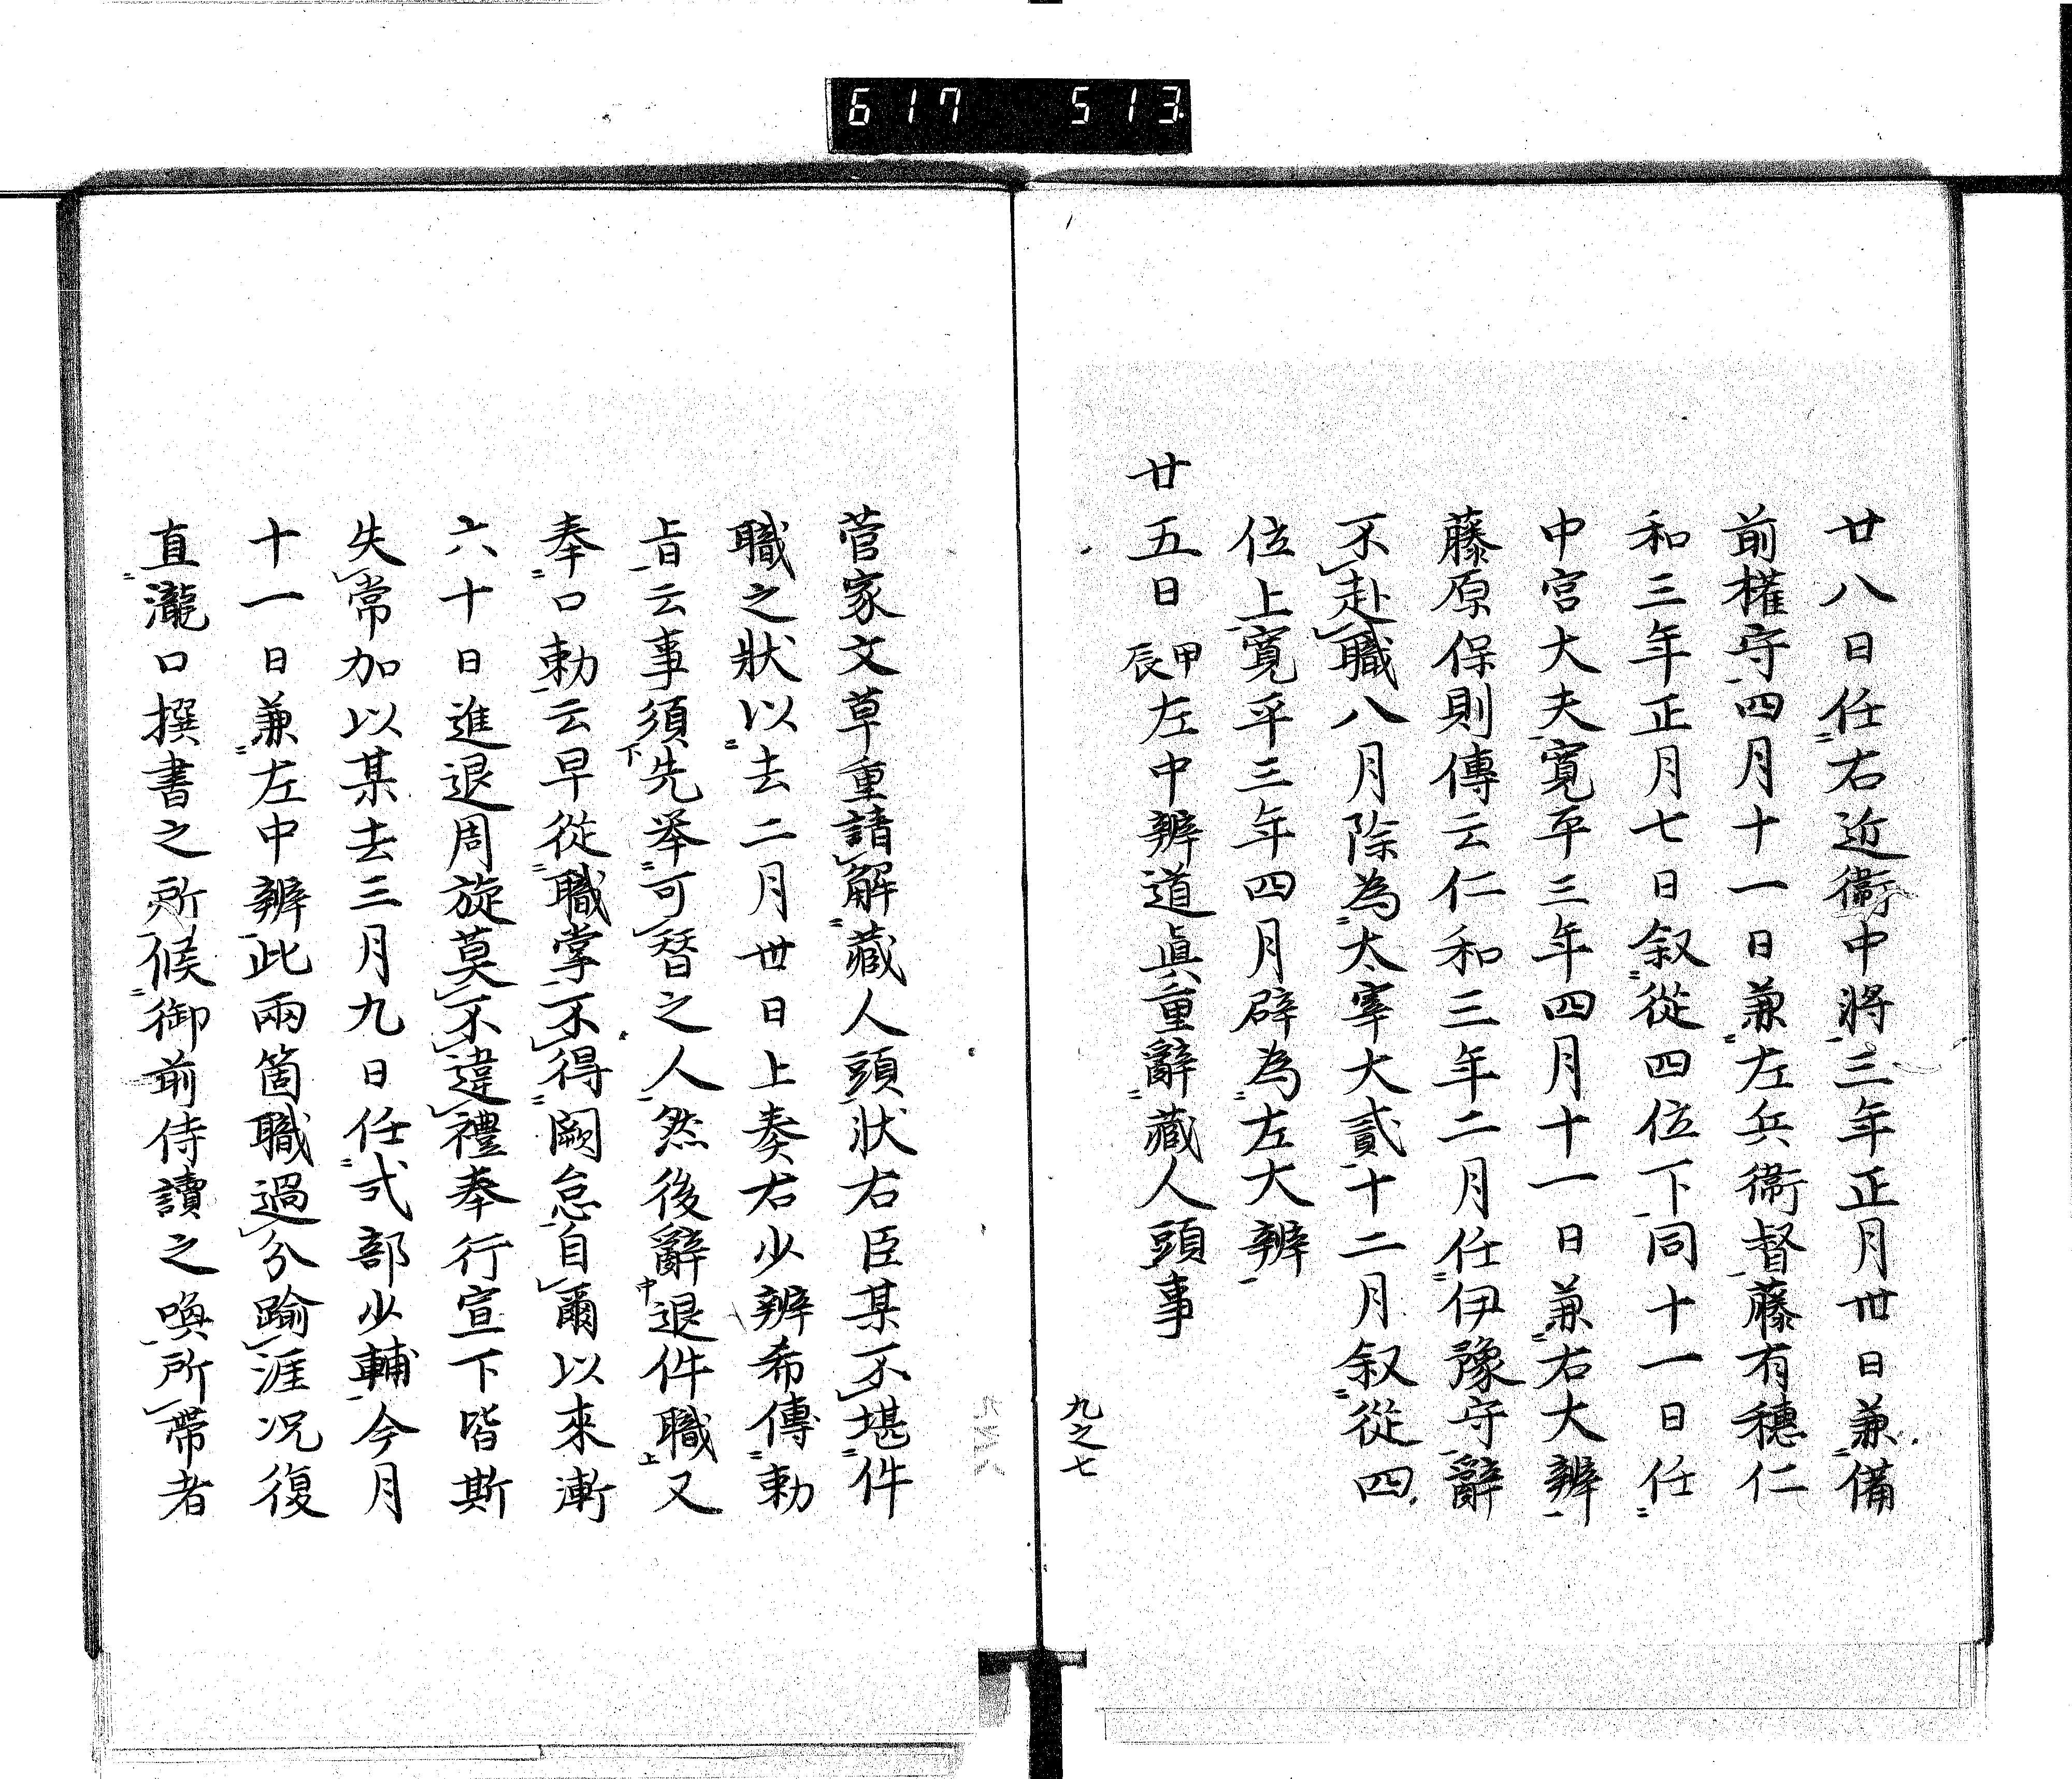 617 513
廿八日任右近衞中將三年正月丗日兼備
前權守四月十一日兼左兵衞督藤有穗仁
和三年正月七日叙從四位下同十一日任
中宮大夫寬平三年四月十一日兼右大辨
藤原保則傳云仁和三年二月任伊豫守辭
不赴職八月除為太宰大貳十二月叙從四
位上寬平三年四月辟為左大辨
廿五日甲辰左中辨道眞重辭藏人頭事
九之七
菅家文草重請解藏人頭狀右臣某不堪件
職之狀以去二月丗日上奏右少辨希傳勅
旨云事須先举可替之人然後辭退件職又
奉口勅云早從職掌不得闕怠自爾以來漸
六十日進退周旋莫不違禮奉行宣下皆斯
失常加以某去三月九日任式部少輔今月
十一日兼左中辨此兩箇職過分踰涯況復
直瀧口撰書之所候御前侍讀之喚所帶者